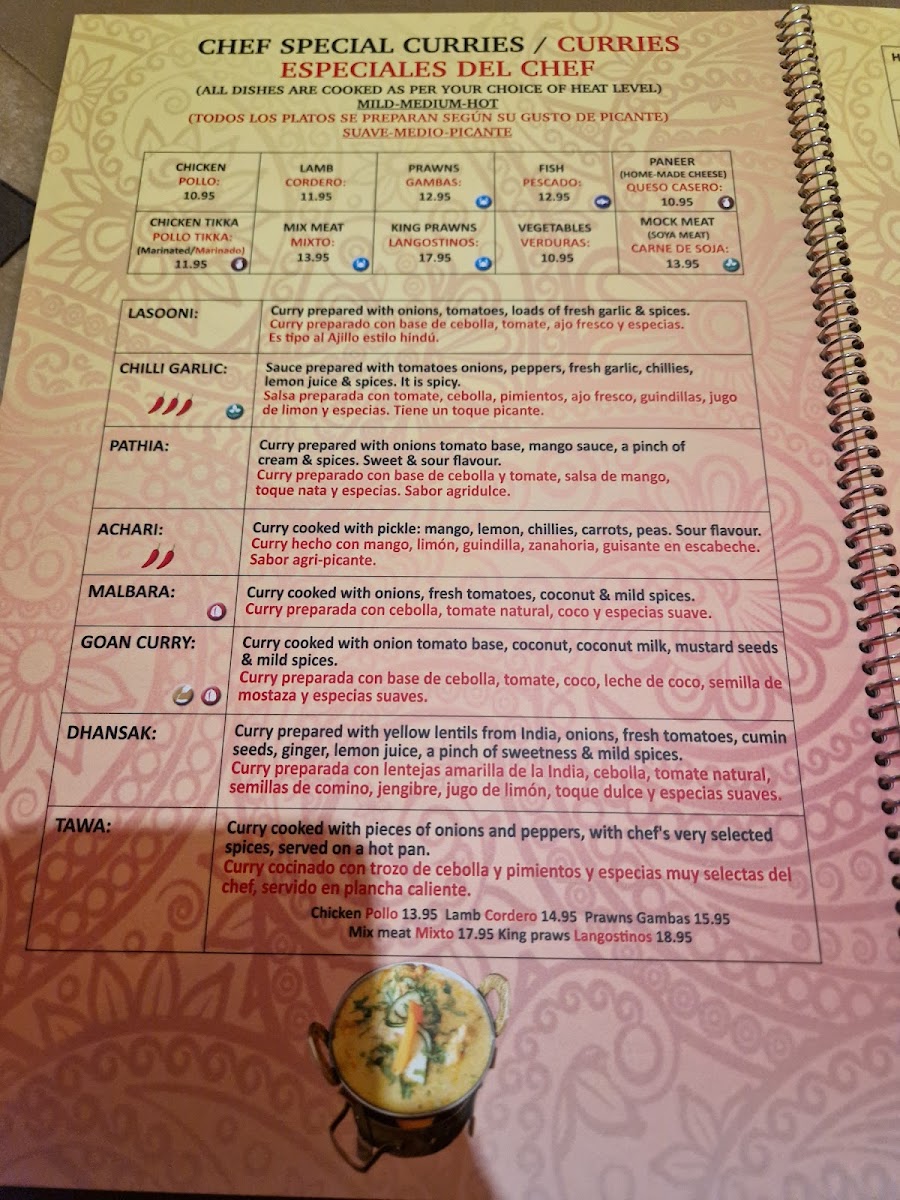 CHEF SPECIAL CURRIES / CURRIES
ESPECIALES DEL CHEF
(ALL DISHES ARE COOKED AS PER YOUR CHOICE OF HEAT LEVEL)
MILD-MEDIUM-HOT
(TODOS LOS PLATOS SE PREPARAN SEGÚN SU GUSTO DE PICANTE)
SUAVE-MEDIO-PICANTE
CHICKEN
POLLO:
10.95
LAMB
CORDERO:
11.95
PRAWNS
GAMBAS:
12.95
FISH
PESCADO:
12.95
PANEER
(HOME-MADE CHEESE)
QUESO CASERO:
10.95
CHICKEN TIKKA
POLLO TIKKA:
(Marinated/Marinado)
11.95
MIX MEAT
MIXTO:
13.95
KING PRAWNS
LANGOSTINOS:
17.95
VEGETABLES
VERDURAS:
10.95
MOCK MEAT
(SOYA MEAT)
CARNE DE SOJA:
13.95
LASOONI:
Curry prepared with onions, tomatoes, loads of fresh garlic & spices.
Curry preparado con base de cebolla, tomate, ajo fresco y especias.
Es tipo al Ajillo estilo hindú.
CHILLI GARLIC:
Sauce prepared with tomatoes onions, peppers, fresh garlic, chillies,
lemon juice & spices. It is spicy.
Salsa preparada con tomate, cebolla, pimientos, ajo fresco, guindillas, jugo
de limon y especias. Tiene un toque picante.
PATHIA:
Curry prepared with onions tomato base, mango sauce, a pinch of
cream & spices. Sweet & sour flavour.
Curry preparado con base de cebolla y tomate, salsa de mango,
toque nata y especias. Sabor agridulce.
ACHARI:
Curry cooked with pickle: mango, lemon, chillies, carrots, peas. Sour flavour.
Curry hecho con mango, limón, guindilla, zanahoria, guisante en escabeche.
Sabor agri-picante.
MALBARA:
Curry cooked with onions, fresh tomatoes, coconut & mild spices.
Curry preparada con cebolla, tomate natural, coco y especias suave.
GOAN CURRY:
Curry cooked with onion tomato base, coconut, coconut milk, mustard seeds
& mild spices.
Curry preparada con base de cebolla, tomate, coco, leche de coco, semilla de
mostaza y especias suaves.
DHANSAK:
Curry prepared with yellow lentils from India, onions, fresh tomatoes, cumin
seeds, ginger, lemon juice, a pinch of sweetness & mild spices.
Curry preparada con lentejas amarilla de la India, cebolla, tomate natural,
semillas de comino, jengibre, jugo de limón, toque dulce y especias suaves.
TAWA:
Curry cooked with pieces of onions and peppers, with chef's very selected
spices, served on a hot pan.
Curry cocinado con trozo de cebolla y pimientos y especias muy selectas del
chef, servido en plancha caliente.
Chicken Pollo 13.95 Lamb Cordero 14.95 Prawns Gambas 15.95
Mix meat Mixto 17.95 King praws Langostinos 18.95
H